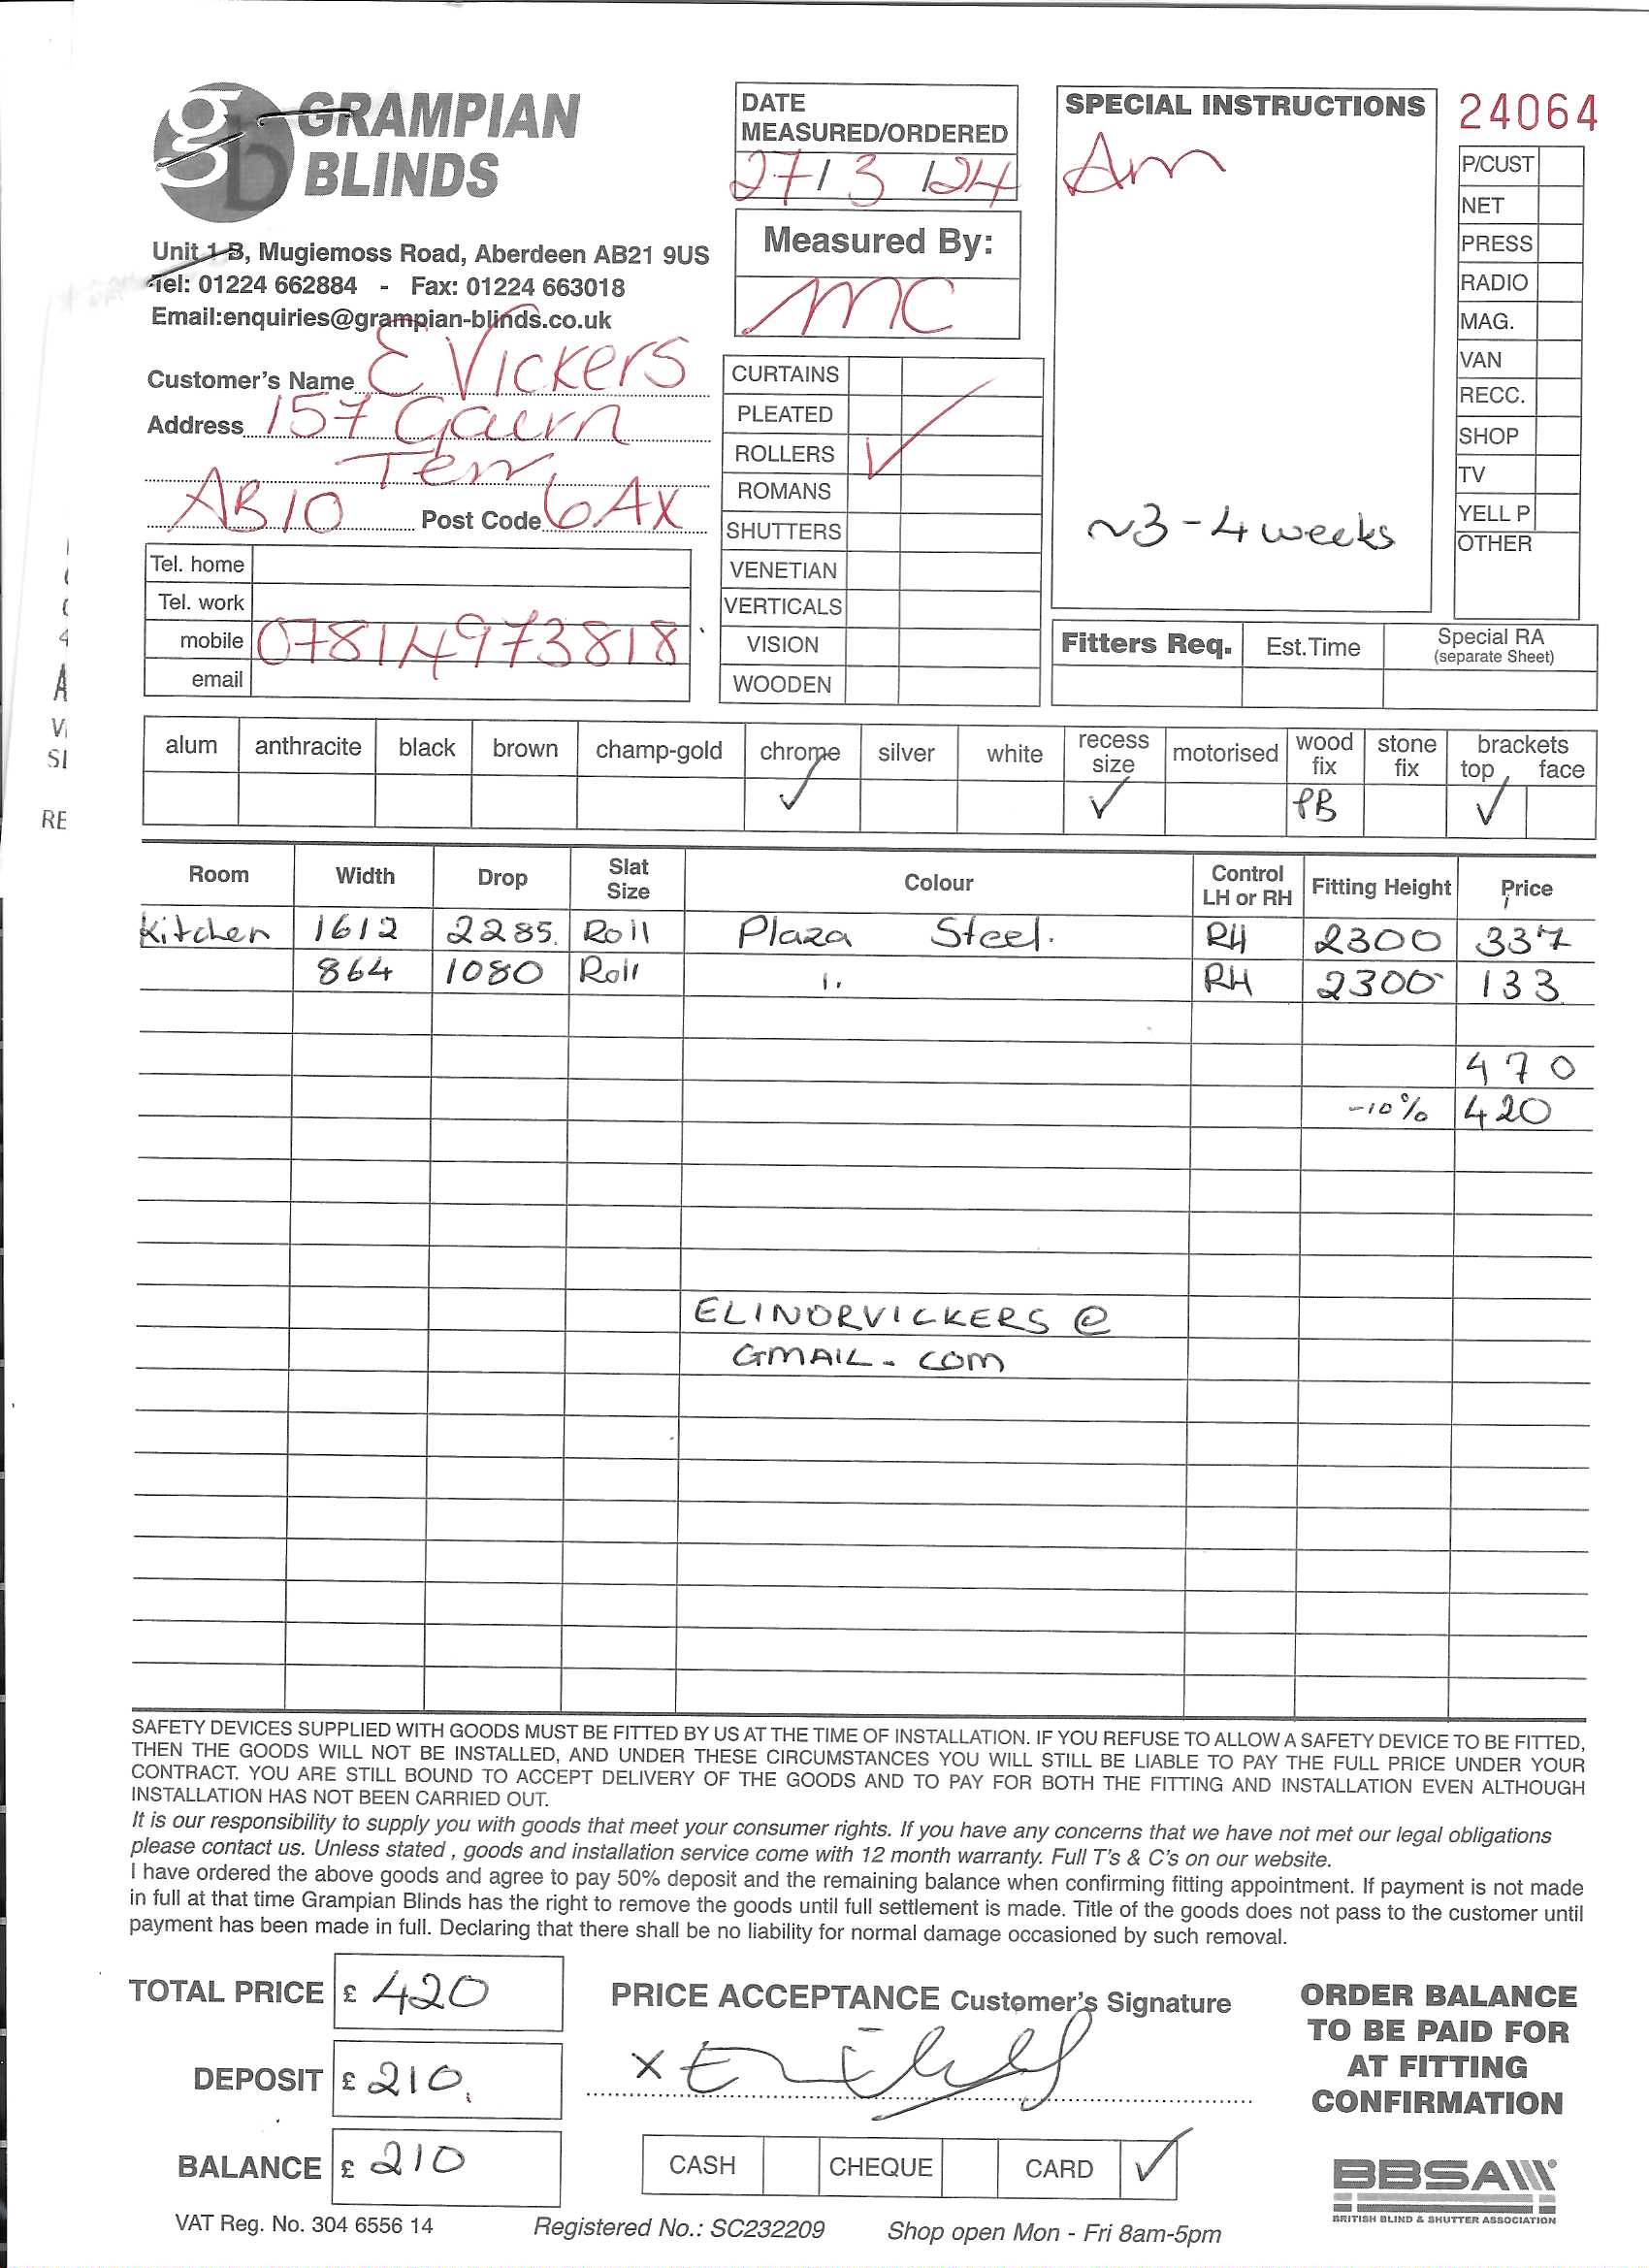 GRAMPIAN
BLINDS
Unit 1-B, Mugiemoss Road, Aberdeen AB21 9US
Tel: 01224 662884 - Fax: 01224 663018
Email:enquiries@grampian-blinds.co.uk
Customer's Name E Vickers
Address 157 Gairn
Terr
AB10 Post Code 6AX
Tel. home
Tel. work
mobile 07814973818
email
DATE
MEASURED/ORDERED
27/3/24
Measured By:
MC
CURTAINS
PLEATED
ROLLERS ✓
ROMANS
SHUTTERS
VENETIAN
VERTICALS
VISION
WOODEN
SPECIAL INSTRUCTIONS
Am
~3-4 weeks
24064
P/CUST
NET
PRESS
RADIO
MAG.
VAN
RECC.
SHOP
TV
YELL P
OTHER
Fitters Req. Est.Time Special RA
(separate Sheet)
alum anthracite black brown champ-gold chrome silver white recess size motorised wood fix stone fix brackets top face
✓ ✓ PB ✓
Room Width Drop Slat Size Colour Control LH or RH Fitting Height Price
Kitchen 1612 2285. Roll Plaza Steel. RH 2300 337
864 1080 Roll ". RH 2300 133
470
-10% 420
ELINORVICKERS @
GMAIL. COM
SAFETY DEVICES SUPPLIED WITH GOODS MUST BE FITTED BY US AT THE TIME OF INSTALLATION. IF YOU REFUSE TO ALLOW A SAFETY DEVICE TO BE FITTED,
THEN THE GOODS WILL NOT BE INSTALLED, AND UNDER THESE CIRCUMSTANCES YOU WILL STILL BE LIABLE TO PAY THE FULL PRICE UNDER YOUR
CONTRACT. YOU ARE STILL BOUND TO ACCEPT DELIVERY OF THE GOODS AND TO PAY FOR BOTH THE FITTING AND INSTALLATION EVEN ALTHOUGH
INSTALLATION HAS NOT BEEN CARRIED OUT.
It is our responsibility to supply you with goods that meet your consumer rights. If you have any concerns that we have not met our legal obligations
please contact us. Unless stated , goods and installation service come with 12 month warranty. Full T's & C's on our website.
I have ordered the above goods and agree to pay 50% deposit and the remaining balance when confirming fitting appointment. If payment is not made
in full at that time Grampian Blinds has the right to remove the goods until full settlement is made. Title of the goods does not pass to the customer until
payment has been made in full. Declaring that there shall be no liability for normal damage occasioned by such removal.
TOTAL PRICE £ 420
DEPOSIT £ 210.
BALANCE £ 210
PRICE ACCEPTANCE Customer's Signature
x
CASH CHEQUE CARD ✓
ORDER BALANCE
TO BE PAID FOR
AT FITTING
CONFIRMATION
BBSA
BRITISH BLIND & SHUTTER ASSOCIATION
VAT Reg. No. 304 6556 14 Registered No.: SC232209 Shop open Mon - Fri 8am-5pm